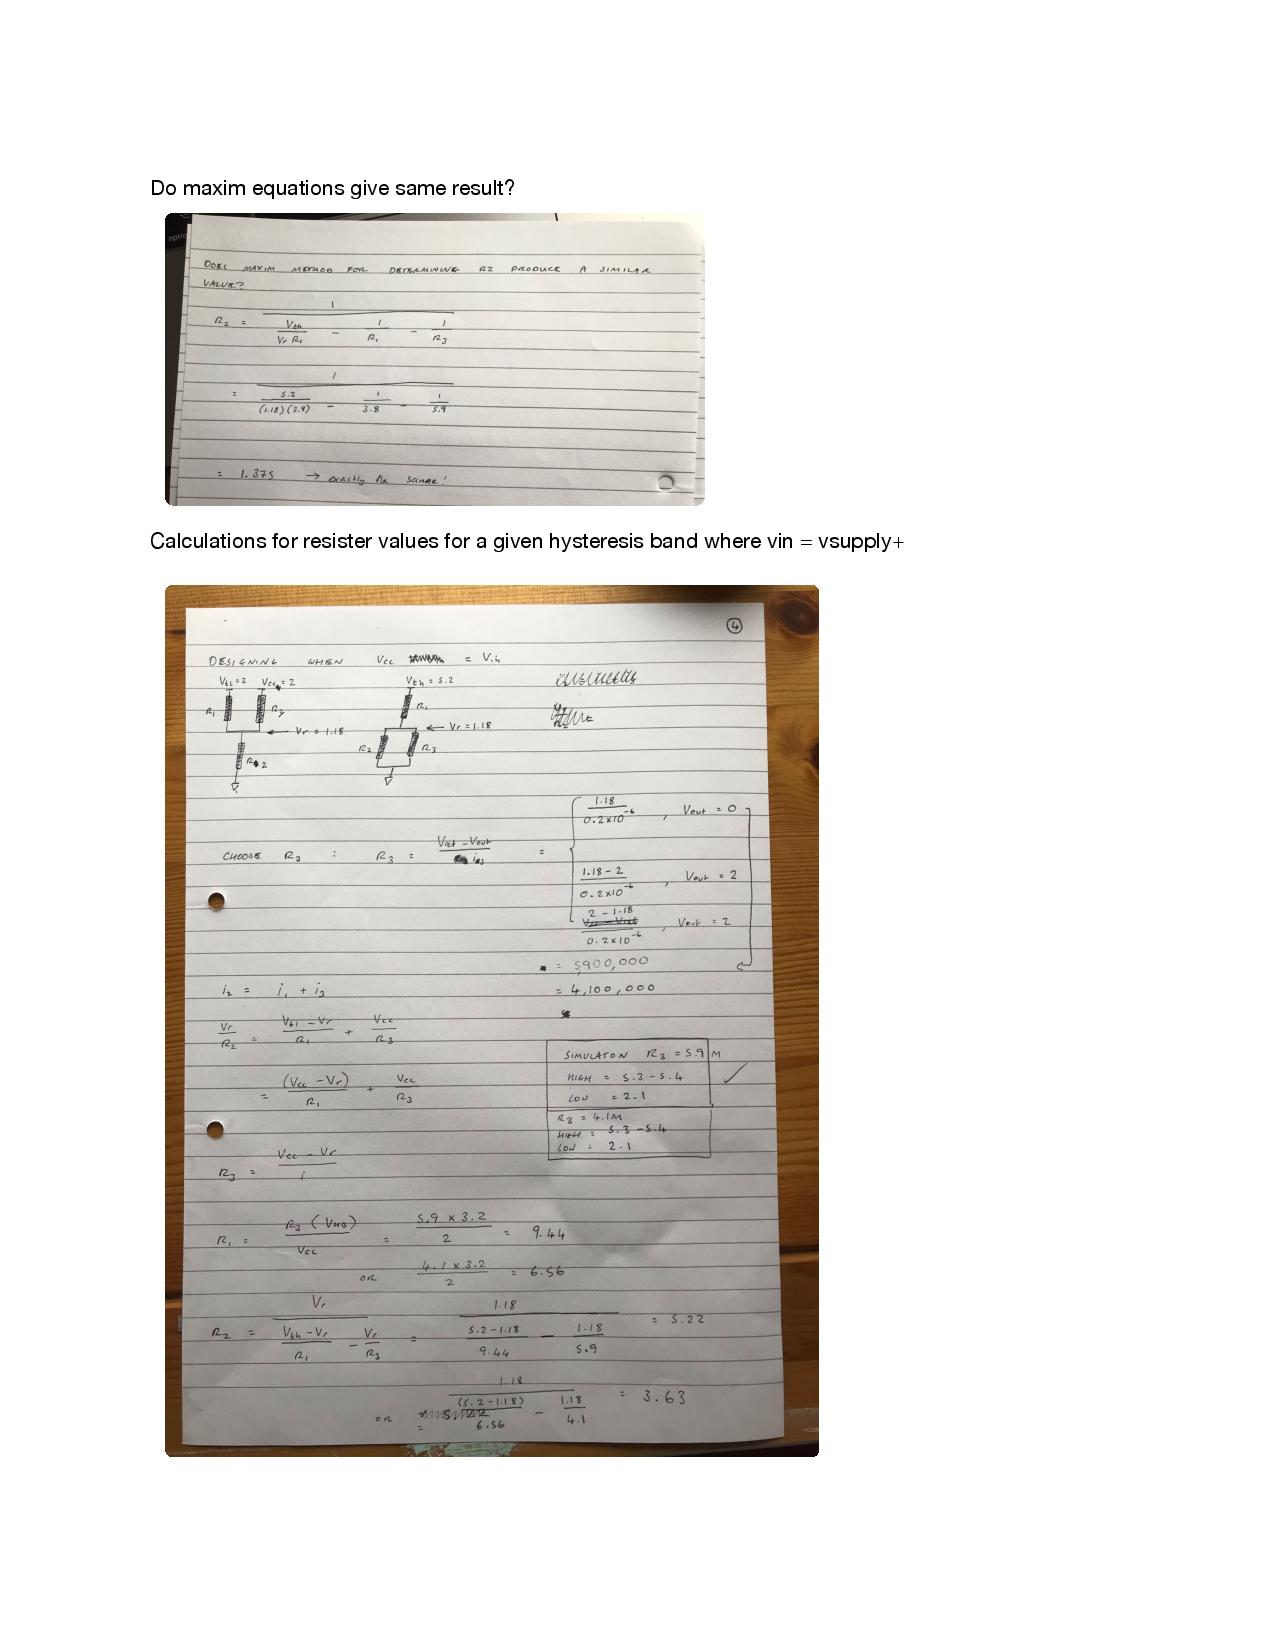 Do maxim equations give same result?
optio
DOES MAXIM METHOD FOR DETERMINING R2 PRODUCE A SIMILAR
VALUE?
R2 = 1 / (Vth / Vr R1 - 1 / R1 - 1 / R3)
= 1 / (5.2 / (1.18)(3.8) - 1 / 3.8 - 1 / 5.9)
= 1.375 → exactly the same!
Calculations for resister values for a given hysteresis band where vin = vsupply+
4
DESIGNING WHEN Vcc = Vin
Vtl = 2 Vcc = 2 Vth = 5.2
R1 R3 R1
Vr = 1.18 Vr = 1.18
R2 R2 R3
1.18 / 0.2x10^-6 , Vout = 0
CHOOSE R3 : R3 = Vref - Vout / iR3 =
1.18 - 2 / 0.2x10^-6 , Vout = 2
2 - 1.18 / 0.2x10^-6 , Vout = 2
= 5,900,000
i2 = i1 + i3 = 4,100,000
Vr / R2 = Vtl - Vr / R1 + Vcc / R3
SIMULATON R3 = 5.9 M
HIGH = 5.3 - 5.4
LOW = 2.1
= (Vcc - Vr) / R1 + Vcc / R3
R3 = 4.1M
HIGH = 5.3 - 5.4
LOW = 2.1
R3 = Vcc - Vr / i
R1 = R3 (VHB) / Vcc = 5.9 x 3.2 / 2 = 9.44
OR 4.1 x 3.2 / 2 = 6.56
R2 = Vr / (Vth - Vr / R1 - Vr / R3) = 1.18 / (5.2 - 1.18 / 9.44 - 1.18 / 5.9) = 5.22
OR = 1.18 / ((5.2 - 1.18) / 6.56 - 1.18 / 4.1) = 3.63